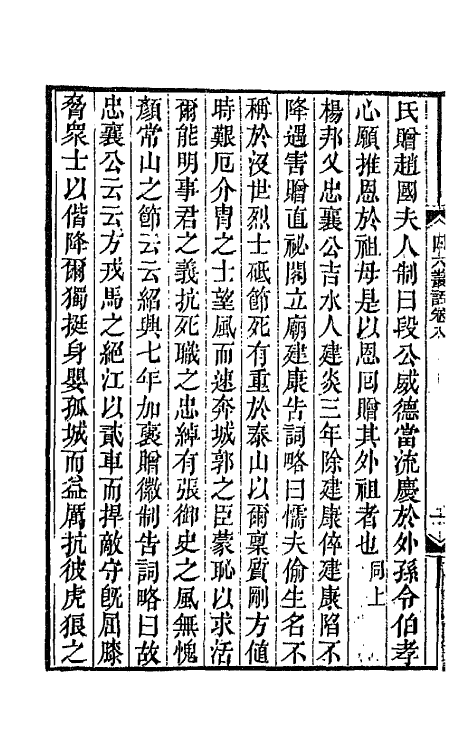 氏贈趙國夫人制曰段公威德當流慶於外孫令伯孝
心願推恩於祖母是以恩回贈其外祖者也同上
楊邦乂忠襄公吉水人建炎三年除建康倅建康陷不
降遇害贈直祕閣立廟建康告詞略曰懦夫偷生名不
稱於沒世烈士砥節死有重於泰山以爾稟質剛方値
時艱厄介冑之士望風而速奔城郭之臣蒙恥以求活
爾能明事君之義抗死職之忠綽有張御史之風無愧
顏常山之節云云紹興七年加襃贈徽制告詞略曰故
忠襄公云云方戎馬之絕江以貳車而捍敵守旣屈膝
脅衆士以偕降爾獨挺身嬰孤城而益厲抗彼虎狼之
四六叢話卷八